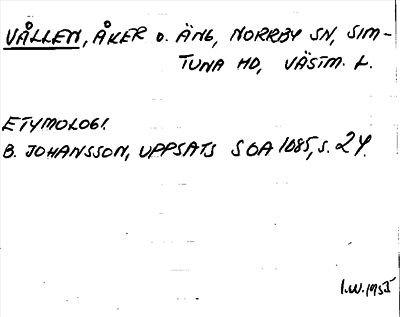 VÅLLEN, ÅKER O. ÄNG, NORRBY SN, SIM-
TUNA HD, VÄSTM. L.
ETYMOLOGI.
B. JOHANSSON, UPPSATS SOA 1085, S. 24.
I.W. 1955